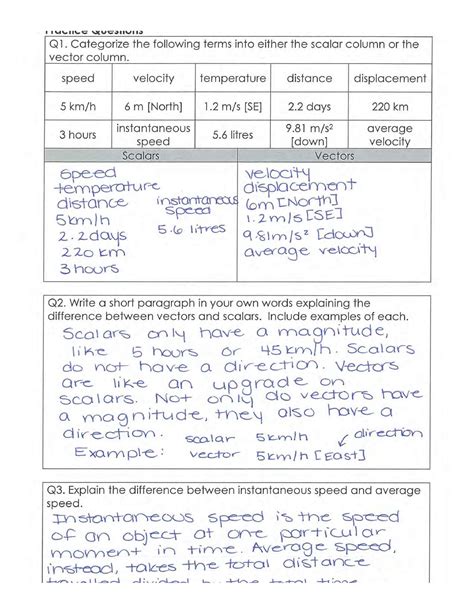 Practice Questions
Q1. Categorize the following terms into either the scalar column or the
vector column.
speed velocity temperature distance displacement
5 km/h 6 m [North] 1.2 m/s [SE] 2.2 days 220 km
3 hours instantaneous speed 5.6 litres 9.81 m/s² [down] average velocity
Scalars Vectors
speed velocity
temperature displacement
distance instantaneous speed 6m [North]
5km/h 5.6 litres 1.2m/s [SE]
2.2days 9.81m/s² [down]
220 km average velocity
3 hours
Q2. Write a short paragraph in your own words explaining the
difference between vectors and scalars. Include examples of each.
Scalars only have a magnitude,
like 5 hours or 45km/h. Scalars
do not have a direction. Vectors
are like an upgrade on
scalars. Not only do vectors have
a magnitude, they also have a
direction. scalar 5km/h direction
Example: vector 5km/h [East]
Q3. Explain the difference between instantaneous speed and average
speed.
Instantaneous speed is the speed
of an object at one particular
moment in time. Average speed,
instead, takes the total distance
travelled divided by the total time